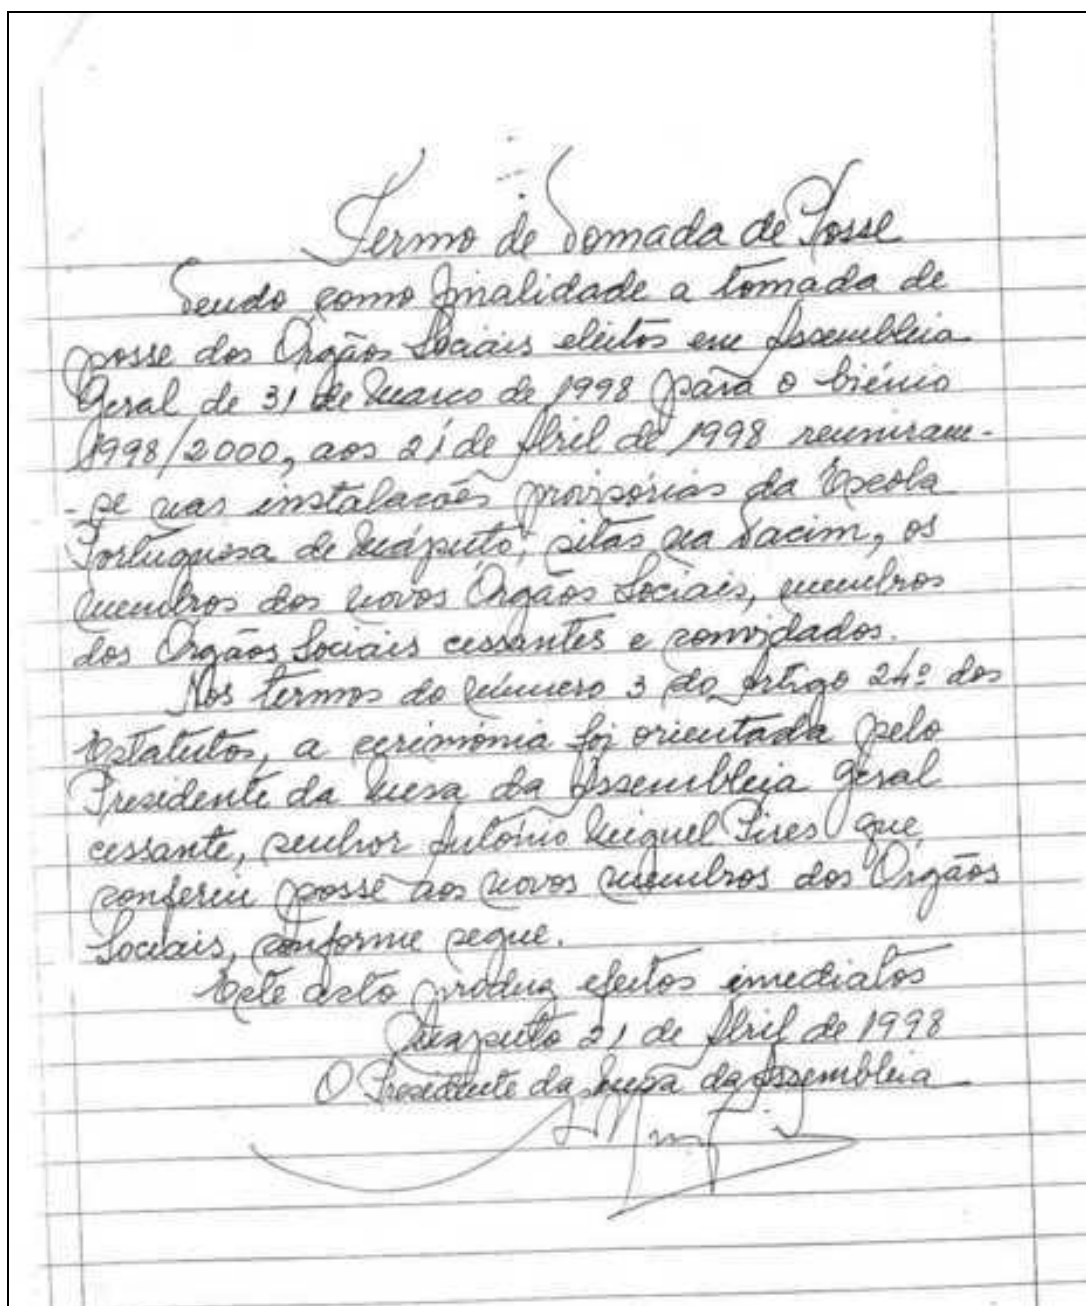 Termo de Tomada de Posse
Tendo como finalidade a tomada de
posse dos Órgãos Sociais eleitos em Assembleia
Geral de 31 de Março de 1998 para o biénio
1998/2000, aos 21 de Abril de 1998 reuniram-
-se nas instalações provisórias da Escola
Portuguesa de Maputo, sitas na Facim, os
membros dos novos Órgãos Sociais, membros
dos Órgãos Sociais cessantes e convidados.
Nos termos do número 3 do Artigo 24º dos
Estatutos, a cerimónia foi orientada pelo
Presidente da Mesa da Assembleia Geral
cessante, senhor António Miguel Pires que
conferiu posse aos novos membros dos Órgãos
Sociais, conforme segue.
Este acto produz efeitos imediatos
Maputo 21 de Abril de 1998
O Presidente da Mesa da Assembleia